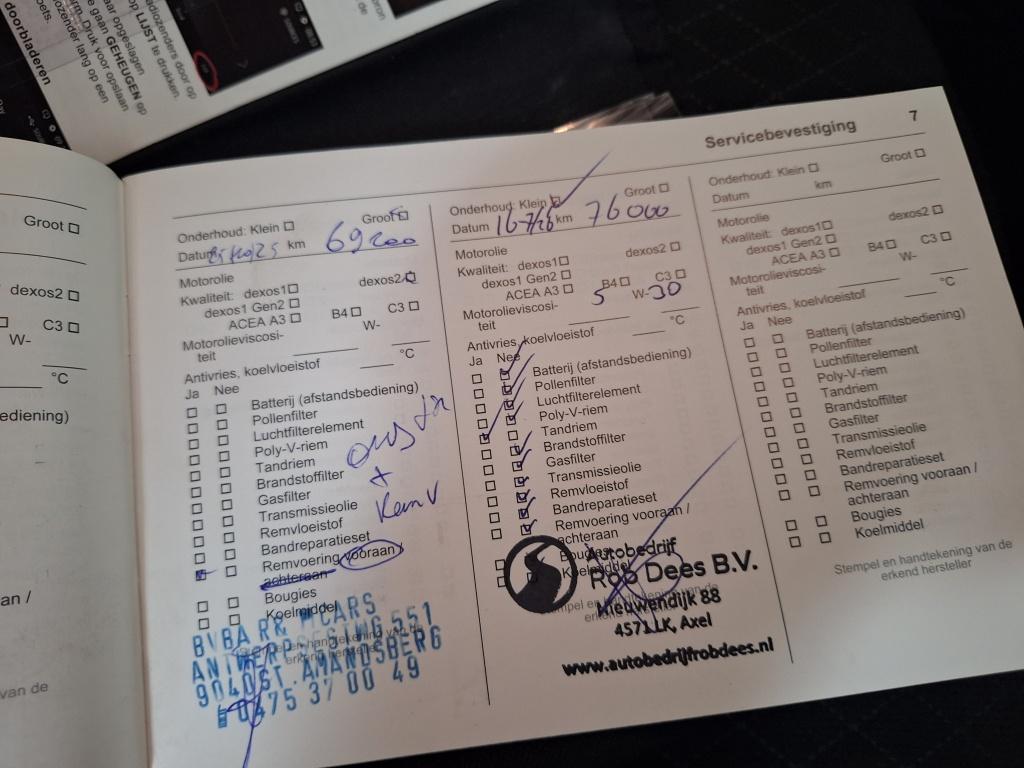 doorbladeren
adiozender lang op een
m. Druk voor opslaan
e gaan GEHEUGEN op
aar opgeslagen
op LIJST te drukken.
adiozenders door op
Servicebevestiging 7
Groot
dexos2
C3
W-
°C
ediening)
an /
van de
Onderhoud: Klein Groot
Datum km 69200
Motorolie
Kwaliteit: dexos1 dexos2
dexos1 Gen2
ACEA A3 B4 C3
Motorolieviscosi- W-
teit
Antivries, koelvloeistof °C
Ja Nee
Batterij (afstandsbediening)
Pollenfilter
Luchtfilterelement
Poly-V-riem
Tandriem
Brandstoffilter
Gasfilter
Transmissieolie
Remvloeistof
Bandreparatieset
Remvoering vooraan /
achteraan
Bougies
Koelmiddel
+
BVBA R& M CARS
551
9040 ST. AMANDSBERG
0475 37 00 49
Onderhoud: Klein Groot
Datum km 76000
Motorolie
Kwaliteit: dexos1 dexos2
dexos1 Gen2
ACEA A3 B4 C3
Motorolieviscosi- 5 W-30
teit
Antivries, koelvloeistof °C
Ja Nee
Batterij (afstandsbediening)
Pollenfilter
Luchtfilterelement
Poly-V-riem
Tandriem
Brandstoffilter
Gasfilter
Transmissieolie
Remvloeistof
Bandreparatieset
Remvoering vooraan /
achteraan
Bougies
Koelmiddel
Autobedrijf
Rob Dees B.V.
Nieuwendijk 88
4571 LK, Axel
www.autobedrijfrobdees.nl
Onderhoud: Klein Groot
Datum km
Motorolie
Kwaliteit: dexos1 dexos2
dexos1 Gen2
ACEA A3 B4 C3
Motorolieviscosi- W-
teit
Antivries, koelvloeistof °C
Ja Nee
Batterij (afstandsbediening)
Pollenfilter
Luchtfilterelement
Poly-V-riem
Tandriem
Brandstoffilter
Gasfilter
Transmissieolie
Remvloeistof
Bandreparatieset
Remvoering vooraan /
achteraan
Bougies
Koelmiddel
Stempel en handtekening van de
erkend hersteller